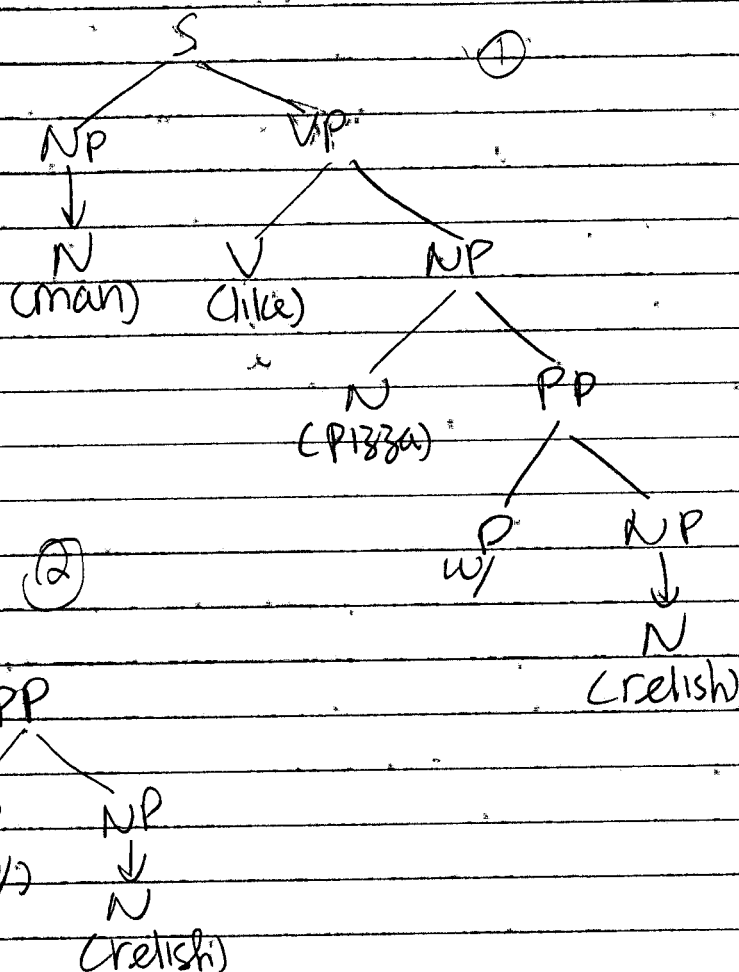 S ①
NP VP
N V NP
(man) (like)
N PP
(pizza)
P NP
w/
②
N
(relish)
PP
NP
N
(relish)